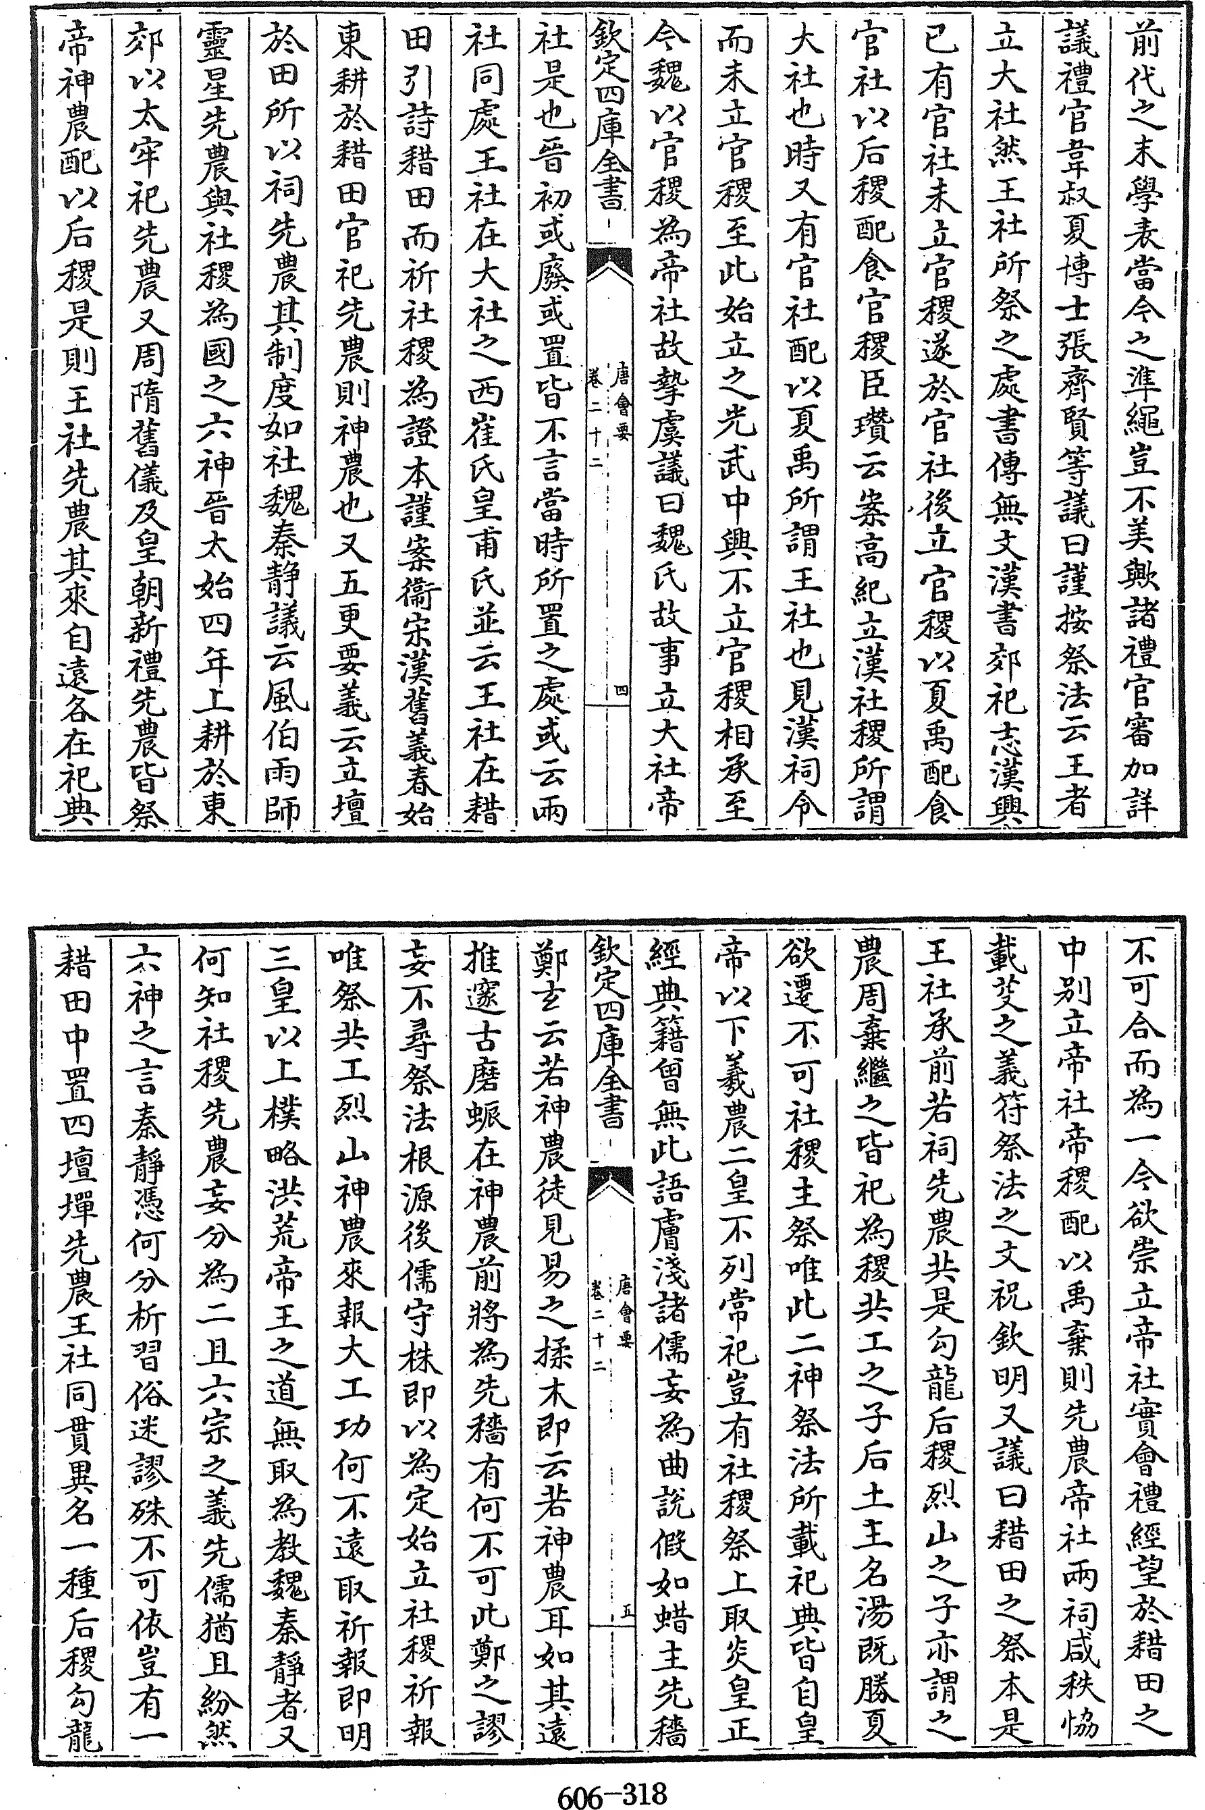 前代之末學表當今之準繩豈不美歟諸禮官審加詳
議禮官韋叔夏博士張齊賢等議曰謹按祭法云王者
立大社然王社所祭之處書傳無文漢書郊祀志漢興
已有官社未立官稷遂於官社後立官稷以夏禹配食
官社以后稷配食官稷臣瓚云案高紀立漢社稷所謂
大社也時又有官社配以夏禹所謂王社也見漢祠令
而未立官稷至此始立之光武中興不立官稷相承至
今魏以官稷為帝社故摯虞議曰魏氏故事立大社帝
欽定四庫全書
唐會要
卷二十二
四
社是也晉初或廢或置皆不言當時所置之處或云兩
社同處王社在大社之西崔氏皇甫氏並云王社在耤
田引詩耤田而祈社稷為證本謹案衞宏漢舊義春始
東耕於耤田官祀先農則神農也又五更要義云立壇
於田所以祠先農其制度如社魏秦静議云風伯雨師
靈星先農與社稷為國之六神晉太始四年上耕於東
郊以太牢祀先農又周隋舊儀及皇朝新禮先農皆祭
帝神農配以后稷是則王社先農其來自遠各在祀典
不可合而為一今欲崇立帝社實會禮經望於耤田之
中别立帝社帝稷配以禹棄則先農帝社兩祠咸秩恊
載芟之義符祭法之文祝欽明又議曰耤田之祭本是
王社承前若祠先農共是勾龍后稷烈山之子亦謂之
農周棄繼之皆祀為稷共工之子后土主名湯旣勝夏
欲遷不可社稷主祭唯此二神祭法所載祀典皆自皇
帝以下羲農二皇不列常祀豈有社稷祭上取炎皇正
經典籍曾無此語膚淺諸儒妄為曲說假如蜡主先穡
欽定四庫全書
唐會要
卷二十二
五
鄭玄云若神農徒見易之揉木即云若神農耳如其遠
推邃古磨蜃在神農前將為先穡有何不可此鄭之謬
妄不尋祭法根源後儒守株即以為定始立社稷祈報
唯祭共工烈山神農來報大工功何不遠取祈報即明
三皇以上樸略洪荒帝王之道無取為教魏秦静者又
何知社稷先農妄分為二且六宗之義先儒猶且紛然
六神之言秦静憑何分析習俗迷謬殊不可依豈有一
耤田中置四壇墠先農王社同貫異名一種后稷勾龍
606-318